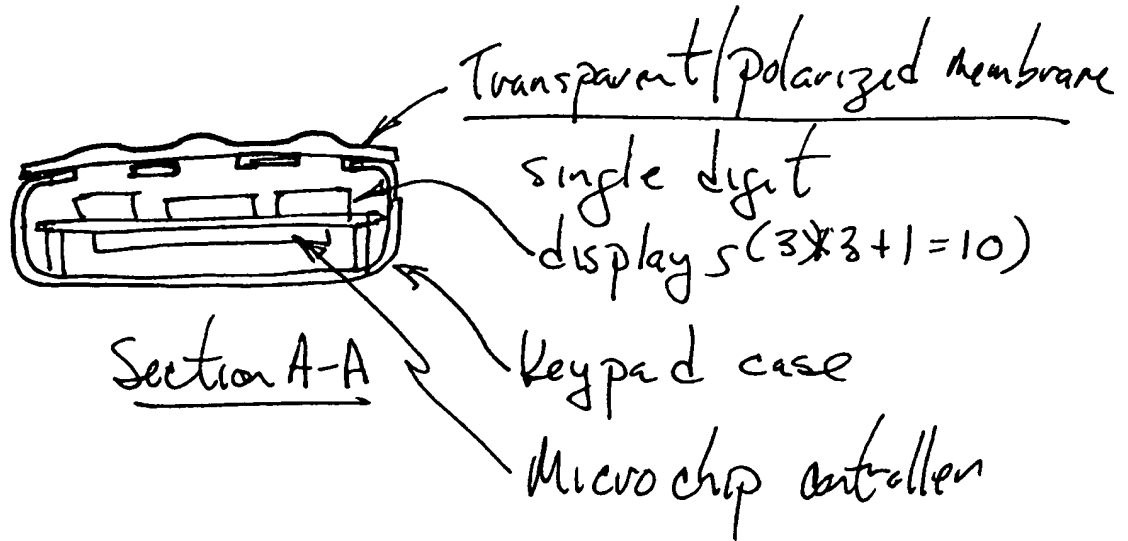 Transparent/polarized membrane
single digit
displays (3X3+1=10)
Section A-A
Keypad case
Microchip controller